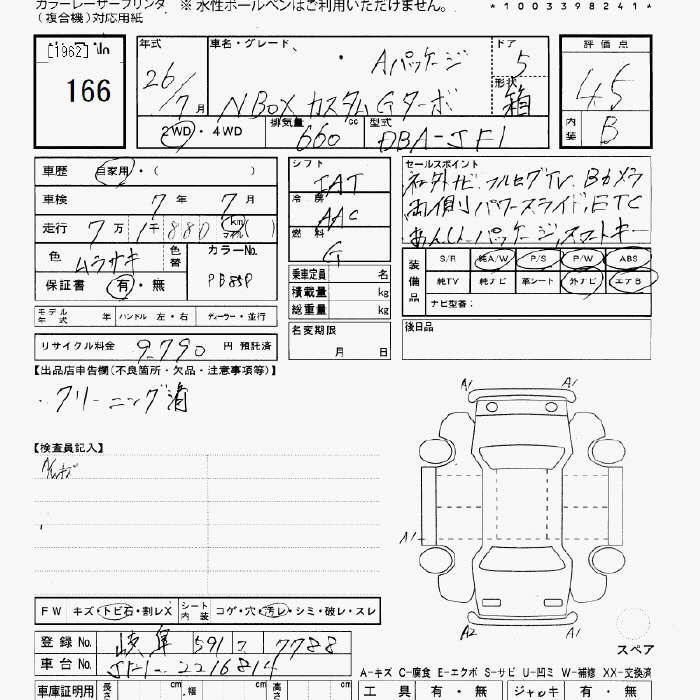 カラーレーザープリンタ ※ 水性ボールペンはご利用いただけません。 *1003398241*
(複合機)対応用紙
[1962]
166
年式 26/7月
車名・グレード Aパッケージ
N BOX カスタム Gターボ
ドア 5
形状 箱
評価点 4.5
内装 B
2WD・4WD 排気量 660 cc 型式 DBA-JF1
車歴 自家用・( )
車検 7年 7月
走行 7万 1千 880 km マイル( )
色 ムラサキ 色替 カラーNo. PB85P
保証書 有・無
モデル年式 年 ハンドル 左・右 ディーラー・並行
リサイクル料金 9,790 円 預託済
シフト IAT
冷房 AAC
燃料 G
乗車定員 名
積載量 kg
総重量 kg
名変期限
月 日
セールスポイント
ネ外ナビ フルセグTV Bカメラ
両側パワースライド,ETC
あんしんパッケージ,スマートキー
装備品 S/R 純A/W P/S P/W ABS
純TV 純ナビ 革シート 外ナビ エアB
ナビ型番:
後日品
【出品店申告欄(不良箇所・欠品・注意事項等)】
・クリーニング済
【検査員記入】
A1 A1
A1
A2 A1
スペア
FW キズ・トビ石・割レX シート内装 コゲ・穴・汚レ・シミ・破レ・スレ
登録No. 岐阜 591 7788
車台No. JF1-2216814
A-キズ C-腐食 E-エクボ S-サビ U-凹ミ W-補修 XX-交換済
車庫証明用 長さ cm 幅 cm 高さ cm 工具 有・無 ジャッキ 有・無